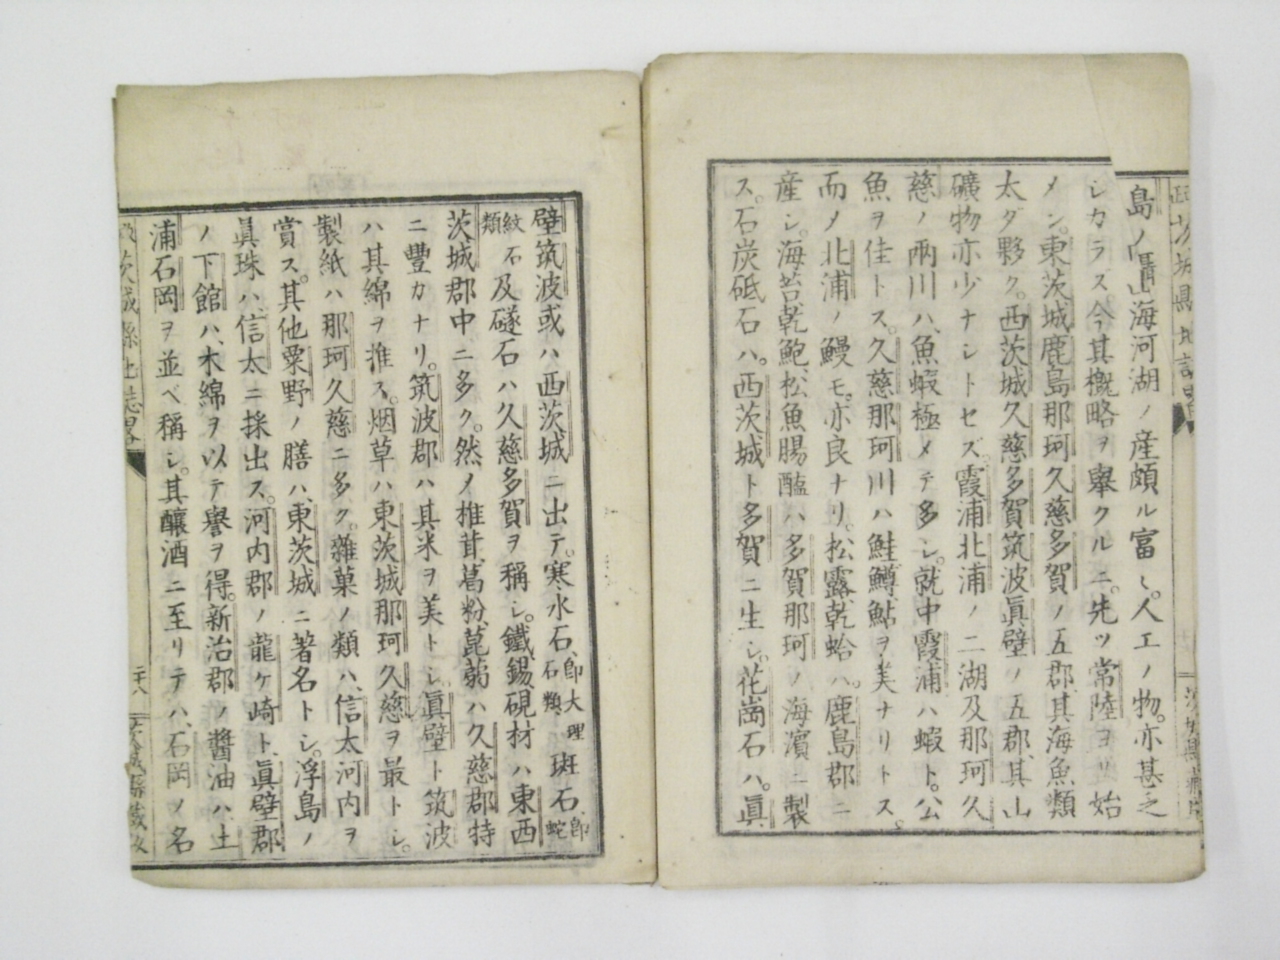 島ノ疊山海河湖ノ産頗ル富ミ。人工ノ物。亦甚乏
シカラス今其概略ヲ擧クルニ。先ツ常陸ヨリ始
メン。東茨城鹿島那珂久慈多賀ノ五郡、其海魚類
太タ夥ク。西茨城久慈多賀筑波眞壁ノ五郡、其山
礦物亦少ナシトセズ。霞浦北浦ノ二湖及那珂久
慈ノ兩川ハ、魚蝦極メテ多シ。就中霞浦ハ蝦ト。公
魚ヲ佳トス。久慈那珂川ハ鮭鱒鮎ヲ美ナリトス。
而メ北浦ノ鰻モ。亦良ナリ。松露乾蛤ハ。鹿島郡ニ
産シ。海苔乾鮑、松魚膓醢ハ多賀那珂ノ海濵ニ製
ス。石炭砥石ハ。西茨城ト多賀ニ生シ。花崗石ハ。眞
壁筑波或ハ西茨城ニ出テ。寒水石、即大理石類斑石即蛇
紋石類及礈石ハ久慈多賀ヲ稱シ。鐵錫硯材ハ東西
茨城郡中ニ多ク。然メ椎茸、葛粉、菎蒻ハ久慈郡特
ニ豐カナリ。筑波郡ハ其米ヲ美トシ、眞壁ト筑波
ハ其綿ヲ推ス。烟草ハ東茨城那珂久慈ヲ最トシ。
製紙ハ那珂久慈ニ多ク。雜菓ノ類ハ、信太河内ヲ
賞ス。其他粟野ノ膳ハ、東茨城ニ著名トシ。浮島ノ
眞珠ハ、信太ニ採出ス。河内郡ノ龍ケ崎ト、眞壁郡
ノ下館ハ、木綿ヲ以テ譽ヲ得。新治郡ノ醬油ハ土
浦石岡ヲ並ベ稱シ。其釀酒ニ至リテハ、石岡ノ名
茨城縣地誌畧
二十八